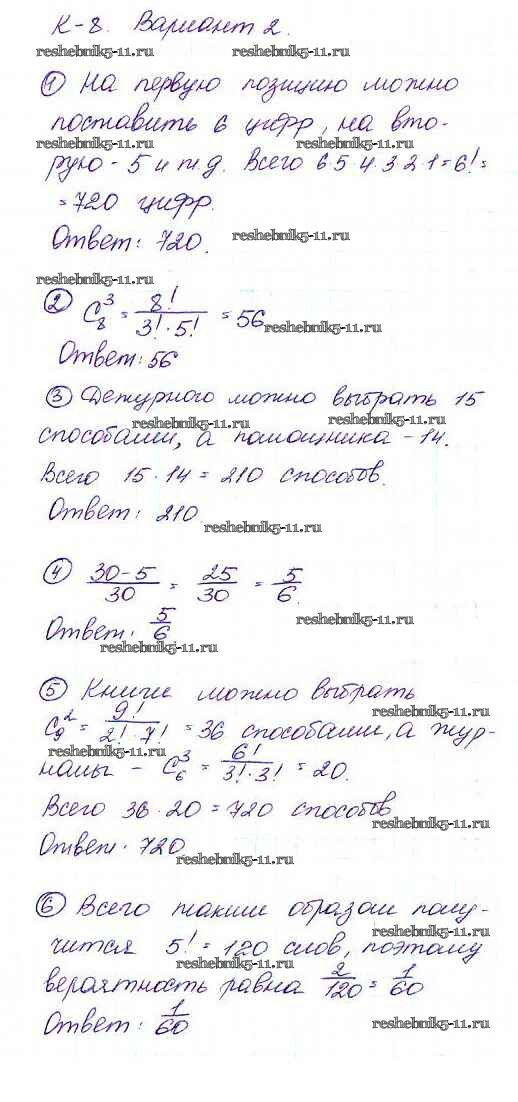 К-8. Вариант 2.
reshebnik5-11.ru reshebnik5-11.ru
① На первую позицию можно
поставить 6 цифр, на вто-
reshebnik5-11.ru reshebnik5-11.ru
рую - 5 и т.д. Всего 6·5·4·3·2·1=6!=
=720 цифр.
Ответ: 720. reshebnik5-11.ru
reshebnik5-11.ru
② C₈³ = 8!/(3!·5!) = 56
reshebnik5-11.ru
Ответ: 56
③ Дежурного можно выбрать 15
reshebnik5-11.ru reshebnik5-11.ru
способами, а помощника - 14.
Всего 15·14 = 210 способов.
Ответ: 210. reshebnik5-11.ru
④ (30-5)/30 = 25/30 = 5/6.
Ответ: 5/6 reshebnik5-11.ru
⑤ Книги можно выбрать
C₉² = 9!/(2!·7!) = 36 способами, а жур-
reshebnik5-11.ru reshebnik5-11.ru
налы - C₆³ = 6!/(3!·3!) = 20.
Всего 36·20 = 720 способов
reshebnik5-11.ru
Ответ. 720 reshebnik5-11.ru
⑥ Всего таким образом полу-
чится 5! = 120 слов, поэтому
reshebnik5-11.ru reshebnik5-11.ru
вероятность равна 2/120 = 1/60
Ответ: 1/60 reshebnik5-11.ru